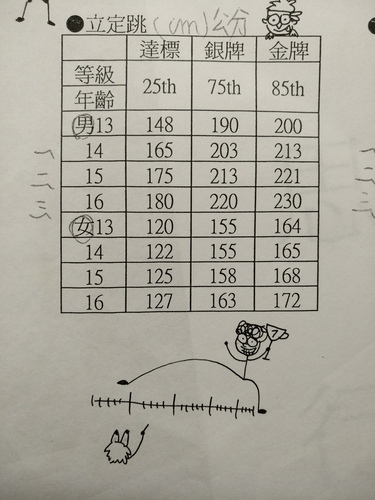 ●立定跳(cm)公分
達標 銀牌 金牌
等級
年齡
25th 75th 85th
男13 148 190 200
一 14 165 203 213
二 15 175 213 221
三 16 180 220 230
女13 120 155 164
14 122 155 165
15 125 158 168
16 127 163 172
7